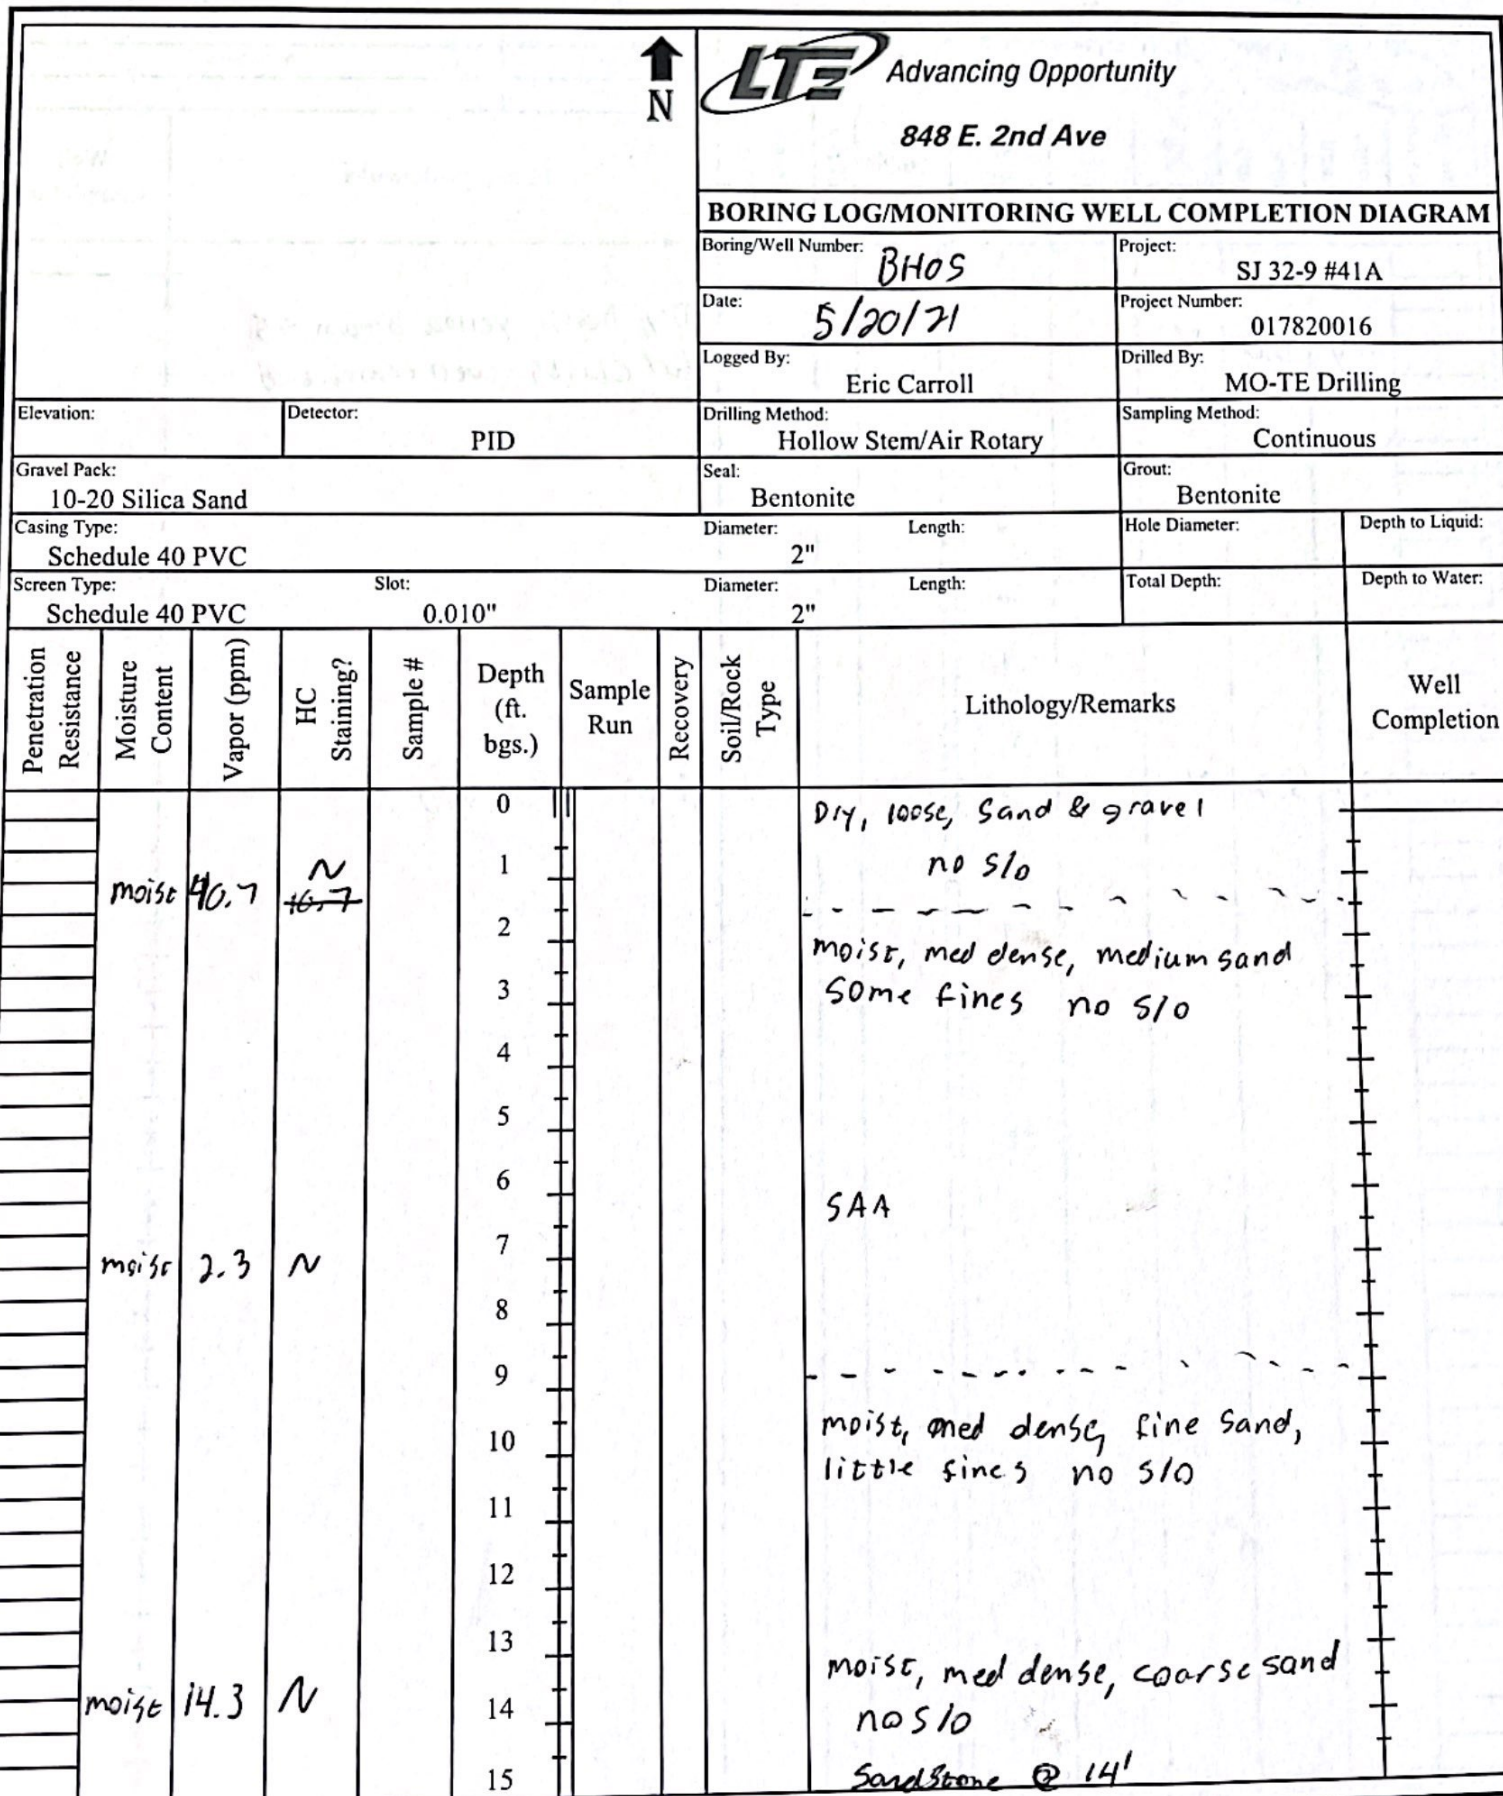 N
LTE Advancing Opportunity
848 E. 2nd Ave
BORING LOG/MONITORING WELL COMPLETION DIAGRAM
Boring/Well Number: BH05
Project: SJ 32-9 #41A
Date: 5/20/21
Project Number: 017820016
Logged By: Eric Carroll
Drilled By: MO-TE Drilling
Elevation:
Detector: PID
Drilling Method: Hollow Stem/Air Rotary
Sampling Method: Continuous
Gravel Pack: 10-20 Silica Sand
Seal: Bentonite
Grout: Bentonite
Casing Type: Schedule 40 PVC
Diameter: 2"
Length:
Hole Diameter:
Depth to Liquid:
Screen Type: Schedule 40 PVC
Slot: 0.010"
Diameter: 2"
Length:
Total Depth:
Depth to Water:
Penetration Resistance
Moisture Content
Vapor (ppm)
HC Staining?
Sample #
Depth (ft. bgs.)
Sample Run
Recovery
Soil/Rock Type
Lithology/Remarks
Well Completion
0 Dry, loose, Sand & gravel
1 no S/o
moist 40.7 N
2
moist, med dense, medium sand
3 some fines no S/o
4
5
6 SAA
7
moist 2.3 N
8
9
moist, med dense, fine sand,
10 little fines no S/o
11
12
13 moist, med dense, coarse sand
moist 14.3 N 14 no S/o
15 Sandstone @ 14'